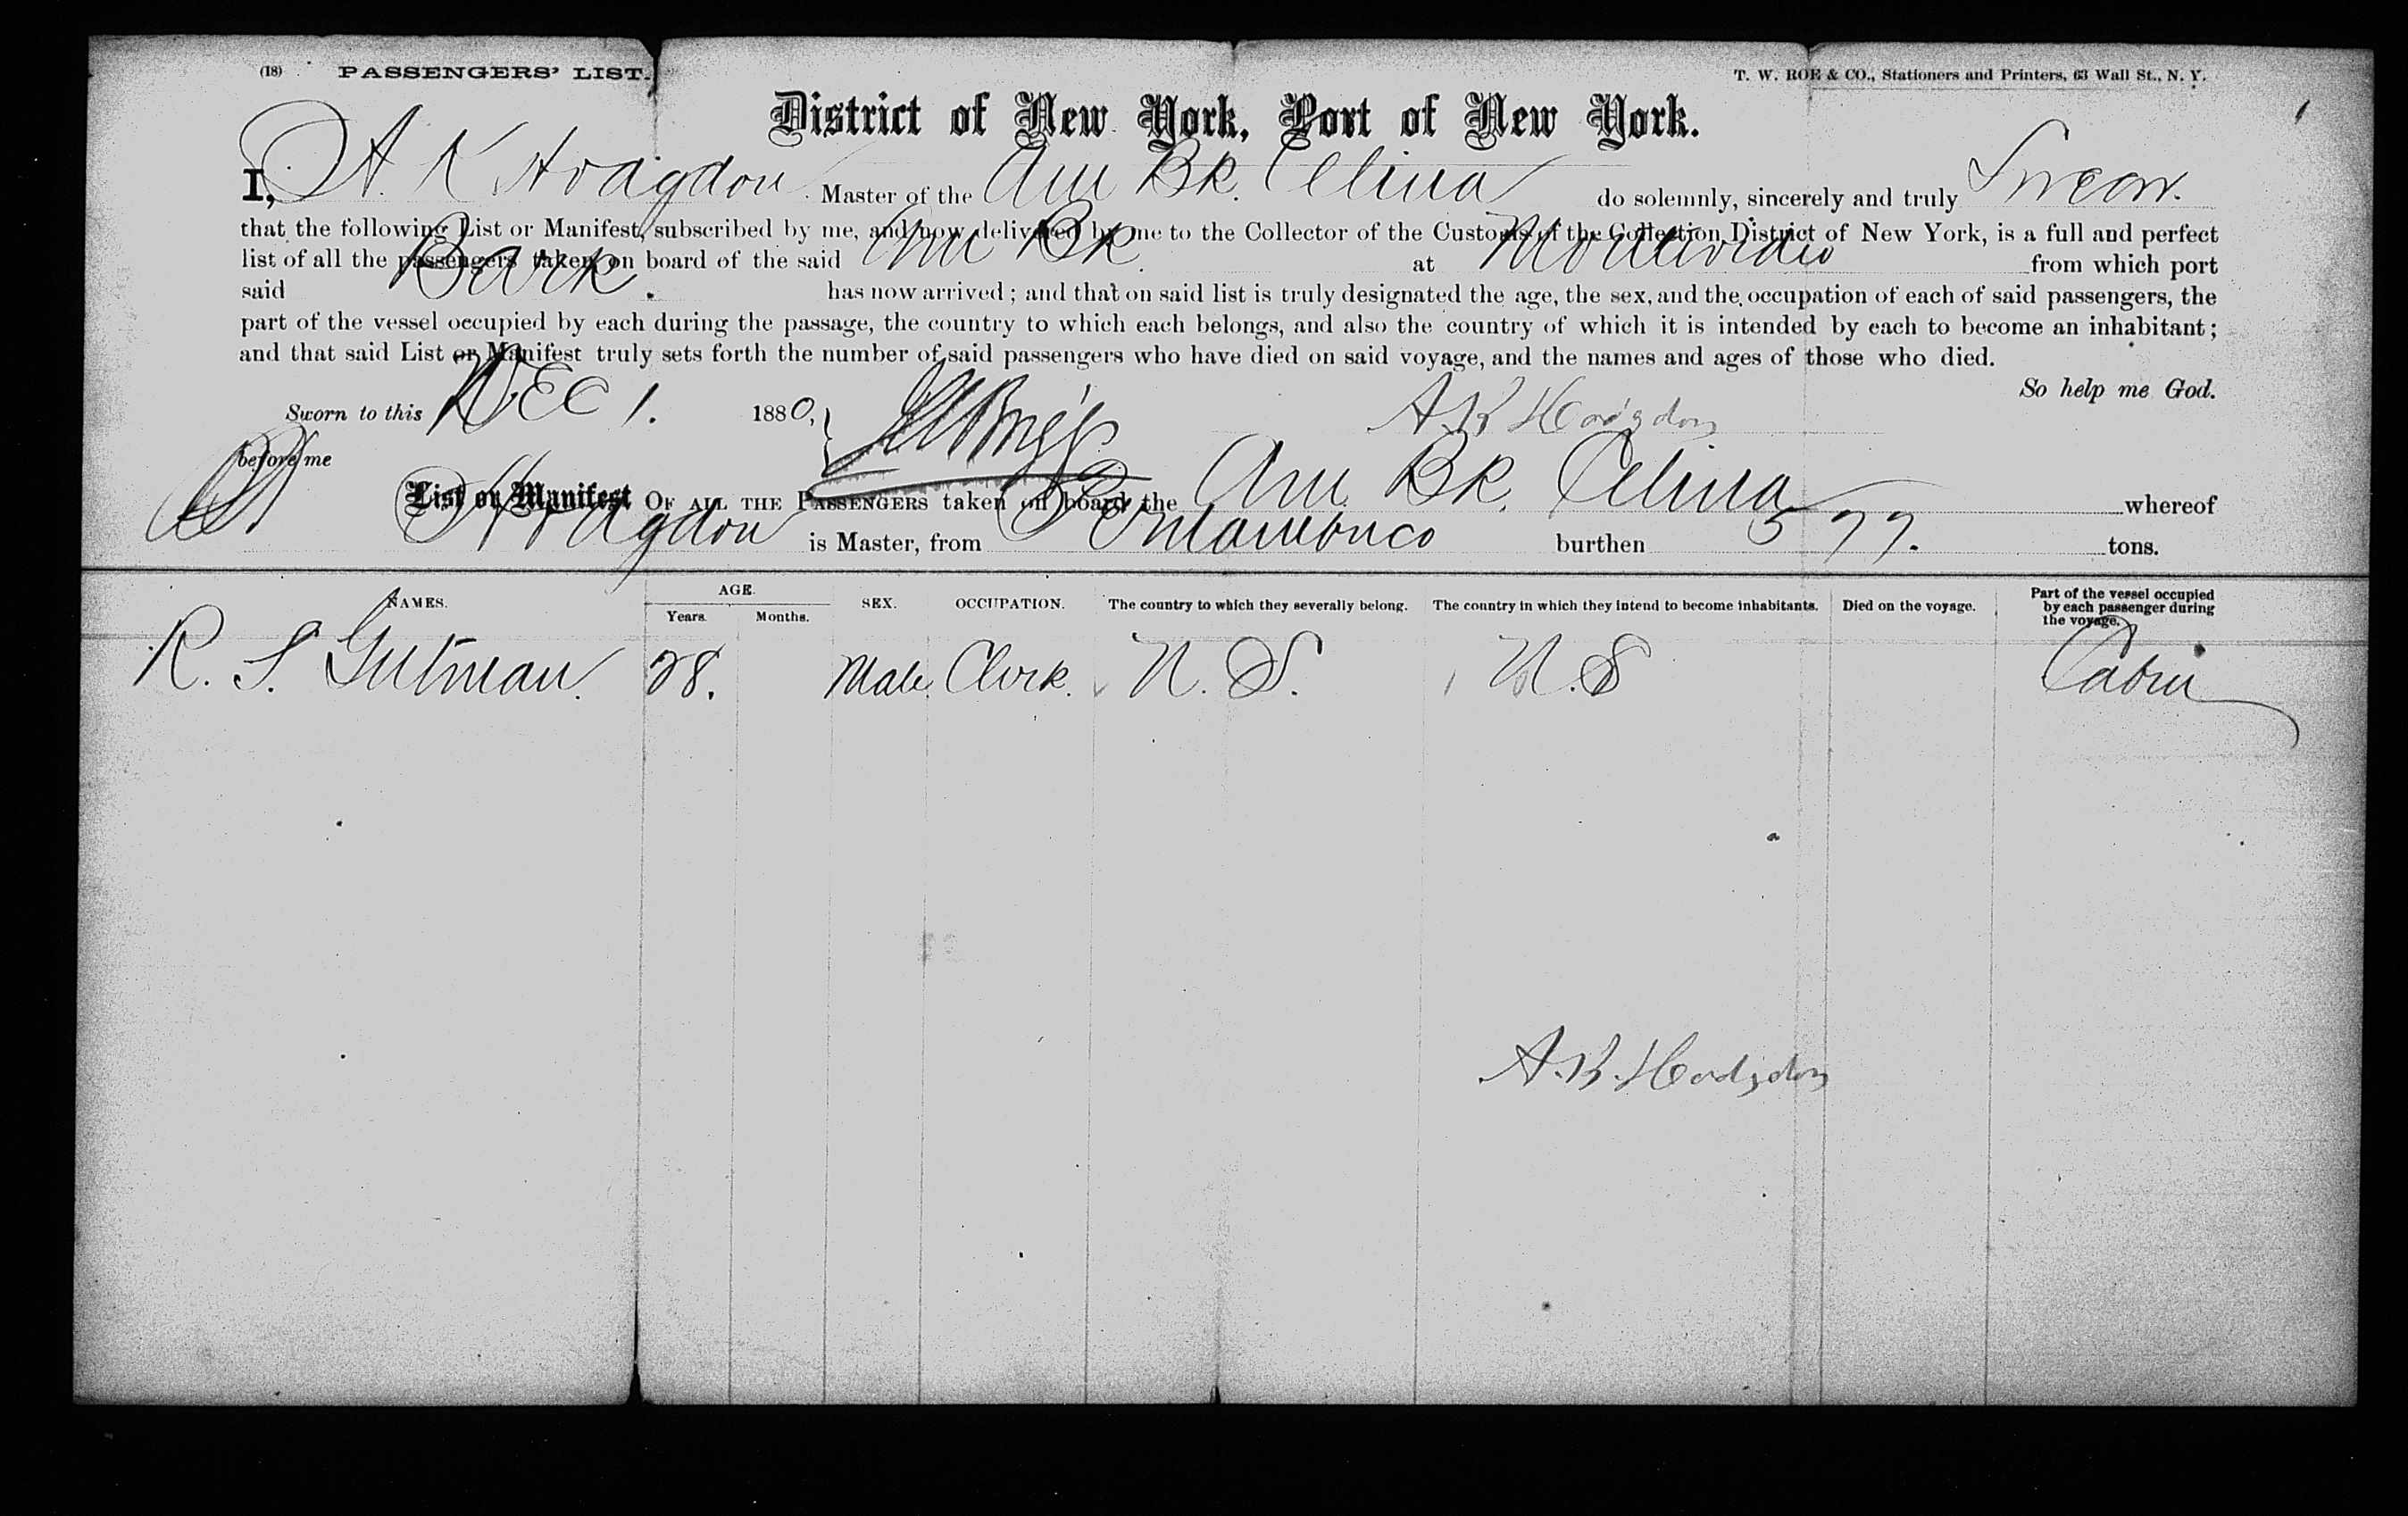 (18) PASSENGERS' LIST.
T. W. ROE & CO., Stationers and Printers, 63 Wall St., N. Y.
District of New York, Port of New York.
I, A. K Hodgdon Master of the Am Bk. Celina do solemnly, sincerely and truly Swear.
that the following List or Manifest, subscribed by me, and now delivered by me to the Collector of the Customs of the Collection District of New York, is a full and perfect
list of all the passengers taken on board of the said Am Bk. at Montevideo from which port
said Bark. has now arrived; and that on said list is truly designated the age, the sex, and the occupation of each of said passengers, the
part of the vessel occupied by each during the passage, the country to which each belongs, and also the country of which it is intended by each to become an inhabitant;
and that said List or Manifest truly sets forth the number of said passengers who have died on said voyage, and the names and ages of those who died.
So help me God.
Sworn to this DEC 1. 1880, A. K Hodgdon
before me
List or Manifest OF ALL THE PASSENGERS taken on board the Am. Bk. Celina whereof
Hodgdon is Master, from burthen 577. tons.
NAMES. AGE. Years. Months. SEX. OCCUPATION. The country to which they severally belong. The country in which they intend to become inhabitants. Died on the voyage. Part of the vessel occupied by each passenger during the voyage.
R. S. Gutman. 28. Male. Clerk. U. S. U. S Cabin
A. K. Hodgdon